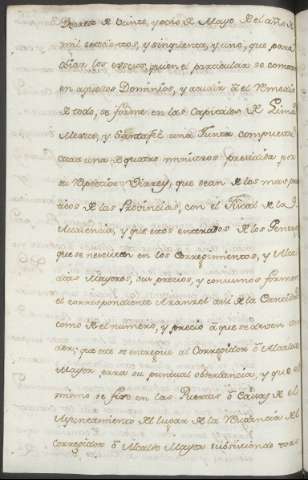 Decreto de veinte, y ocho de Mayo del año de
mil setecientos, y cinquenta, y uno, que para
obiar los excesos, que en el particular se cometen
en aquellos Dominios, y acudir al Remedio
de todo, se forme en las Capitales de Lima
Mexico, y Santa fé una Junta compuesta
cada una de quatro ministros presidida por
su respectivo Virrey, que sean de los mas
de las Provincias, con el Fiscal de la
Audiencia, y que estos enterados de los Generos
que se necesitan en los Corregimientos, y Alcal
dias Mayores, sus precios, y consumos formen
el correspondiente Aranzel asi de la Cantidad
como del numero, y precio a que se deven
der; que este se entregue al Corregidor ò Alcalde
Mayor para su puntual observancia, y que el
mismo se fixe en las Puertas ò Casas de el
Ayuntamiento del lugar de la Residencia del
Corregidor ò Alcalde Mayor subsistiendo